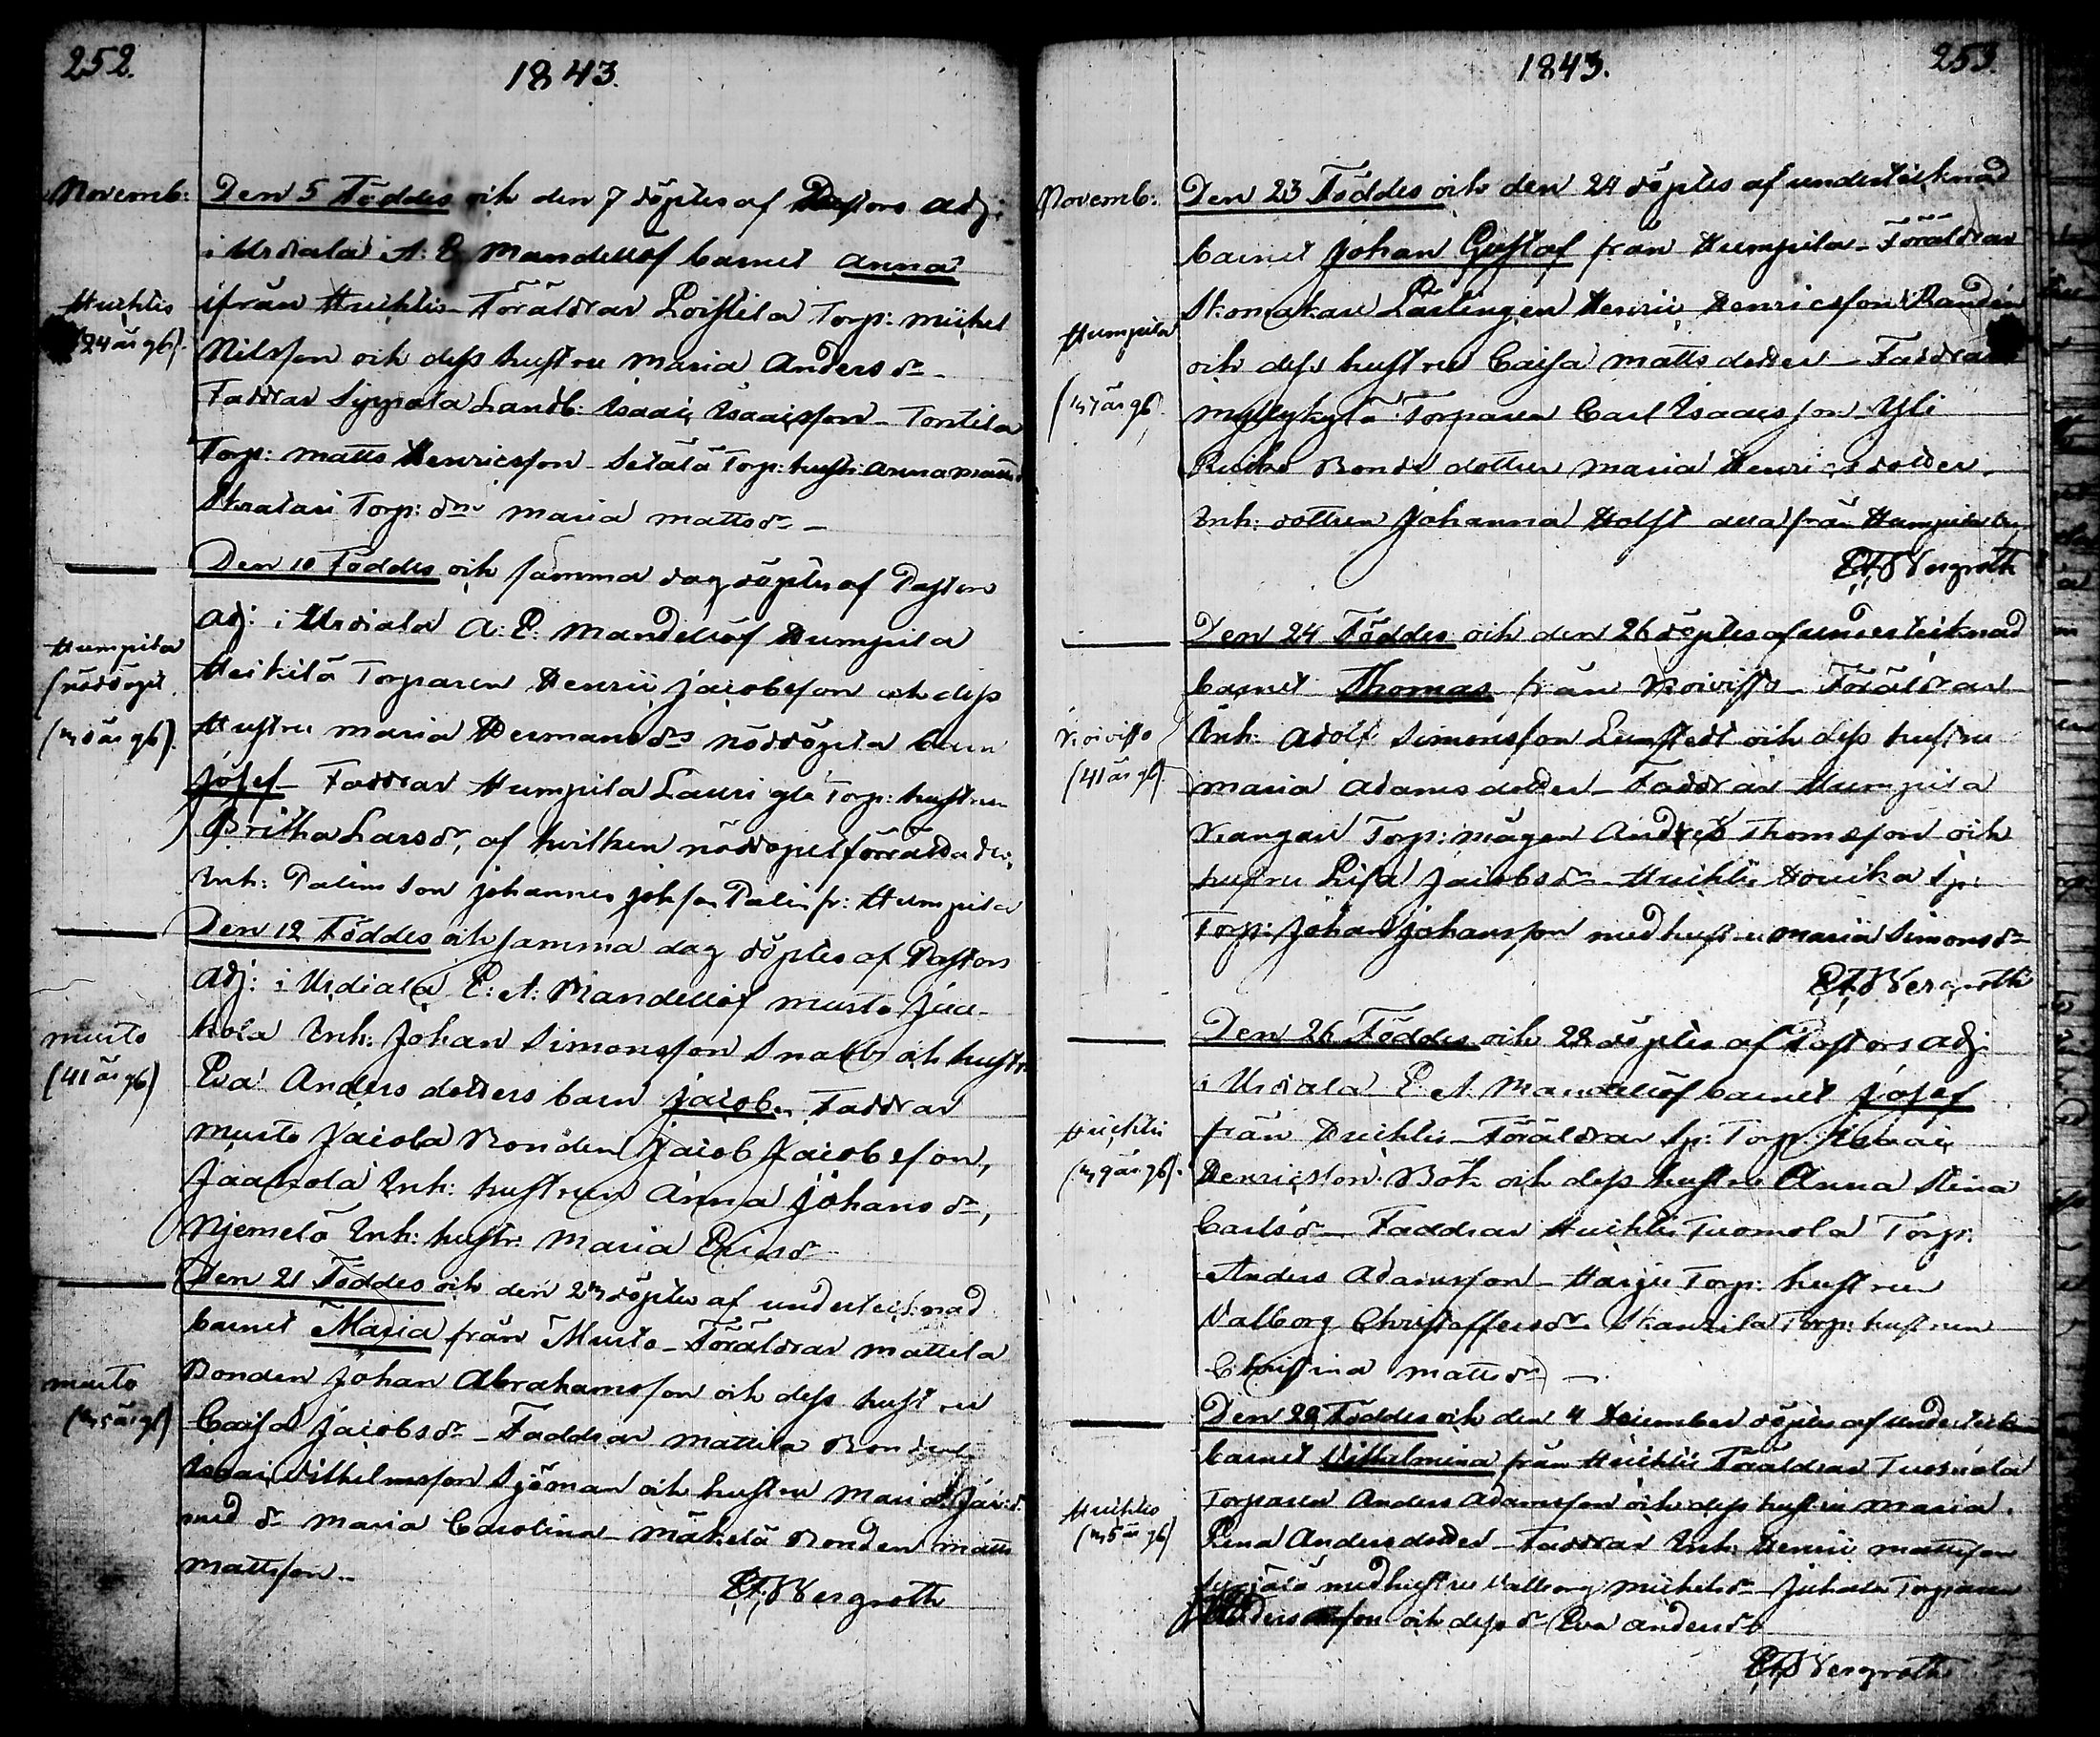 252.
1843.
Novemb:
Den 5 Föddes och den 7 döptes af Pastors Adj:
i Urdiala A: E Mandellöf barnet Anna
Huhtis
ifrån Huhtis - Föräldrar Torp: Michel
(24 år gl).
Nilsson och dess hustru Maria Anders dr -
Faddrar Sypiala Landb: Isaac Isaacsson - Tontila
Torp: Matts Henricsson - Setälä Torp: hustr: Anna
Torp: drn Maria Matts dr -
Den 10 Föddes och samma dag döptes af Pastors
Adj: i Urdiala A: E: Mandellöf Humpila
Humpila
(nöddöpt
Heikilä Torparen Henric Jacobsson och dess
Hustru Maria Hermans dr nöddöpta barn
Josef - Faddrar Humpila Lauri Torp: hustrun
Britha Lars dr, af hvilken nöddopet förrättades,
Inh: Palins son Johannes Joh:son Palin fr: Humpila
Den 12 Föddes och samma dag döptes af Pastors
Adj: i Urdiala E: A: Mandellöf Murto Jaa-
Murto
kola Inh: Johan Simonsson Snabb och hustr:
(41 år gl)
Eva Anders dotters barn Jacob. Faddrar
Murto Jacola Bonden Jacob Jacobsson,
Jaakola Inh: hustrun Anna Johans dr,
Njemelä Inh: hustr: Maria Erics dr
Den 21 Föddes och den döptes af undertecknad
barnet Maria från Murto - Föräldrar Mattila
Murto
Bonden Johan Abrahamsson och dess hustru
Caisa Jacobs dr - Faddrar Mattila Bonden
Isaac Vilhelmsson Sjöman och hustru Maria Jac: dr
med dr Maria Carolina - Mäkelä Bonden Matts
Mattsson -
Bergroth
1843.
253.
Novemb:
Den 23 Föddes och den 24 döptes af undertecknad
barnet Johan Gustaf från Humpila - Föräldrar
Skomakare Lärlingen Henric Henricsson Randen
Humpila
och dess hustru Caisa Matts dotter - Faddrar
Myllykylä Torparen Carl Isaacsson - Yli
Bonde dottren Maria Henrics dotter
Inh: dottren Johanna Holst alla från Humpila by
Bergroth
Den 24 Föddes och den 26 döptes af undertecknad
barnet Thomas från Koivisto - Föräldrar
Koivisto
Inh: Adolf Simonsson och dess hustru
(41 år gl)
Maria Adams dotter - Faddrar Humpila
Kangari Torp: mågen Anders Thomsson och
hustru Lisa Jacobs dr - Huhtis Sp:
Torp: Johan Johansson med hustru Maria Simons dr
Bergroth
Den 26 Föddes och 28 döptes af Pastors Adj:
i Urdiala E. A. Mandellöf barnet Josef
Huhtis
från Huhtis - Föräldrar Sp: Torp: Isaac
Henricsson Böök och dess hustru Anna Stina
Carls dr - Faddrar Huhtis Tuomola Torp:
Anders Adamsson - Harju Torp: hustrun
Valborg Christoffers dr Torp: hustrun
Christina Matts dr -
Den 29 Föddes och den 4 December döptes af
barnet Vilhelmina från Huhtis Föräldrar Tuomola
Huhtis
Torparen Anders Adamsson och dess hustru Maria
Lena Anders dotter - Faddrar Inh: Henric Mattsson
med hustru Valborg Michels dr - Torparen
och dess dr Eva Anders dr
Bergroth